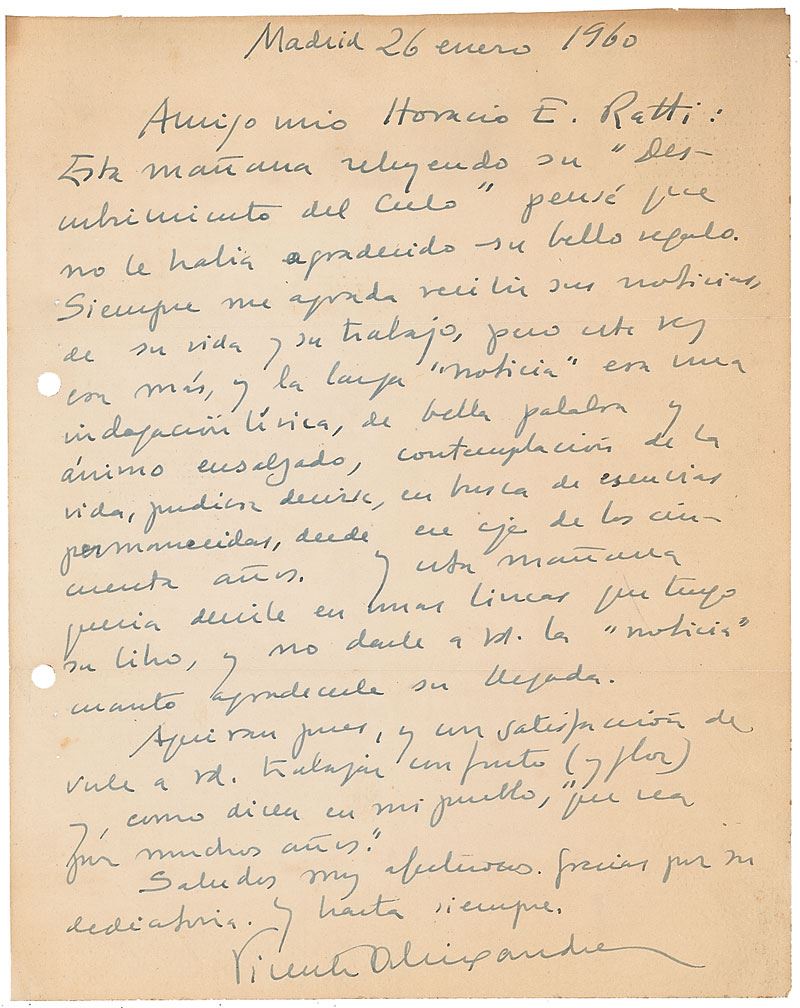 Madrid 26 enero 1960
Amigo mio Horacio E. Ratti:
Esta mañana releyendo su "Des-
cubrimiento del Cielo" pensé que
no le habia agradecido su bello regalo.
Siempre me agrada recibir sus noticias,
de su vida y su trabajo, pero esta vez
era más, y la larga "noticia" era una
indagación lírica, de bella palabra y
ánimo ensalzado, contemplación de la
vida, pudiera decirse, en busca de esencias
permanecidas, desde ese eje de los cin-
cuenta años. Y esta mañana
queria decirle en unas lineas que tengo
su libro, y no darle a vd. la "noticia"
cuanto agradecerle su llegada.
Aqui van pues, y con satisfacción de
verle a vd. trabajar con fruto (y flor)
y, como dicen en mi pueblo, "que sea
por muchos años."
Saludos muy afectuosos. Gracias por su
dedicatoria. Y hasta siempre.
Vicente Aleixandre